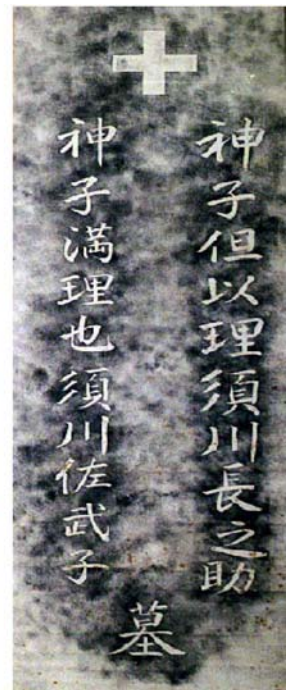 神子但以理須川長之助
神子満理也須川佐武子
墓